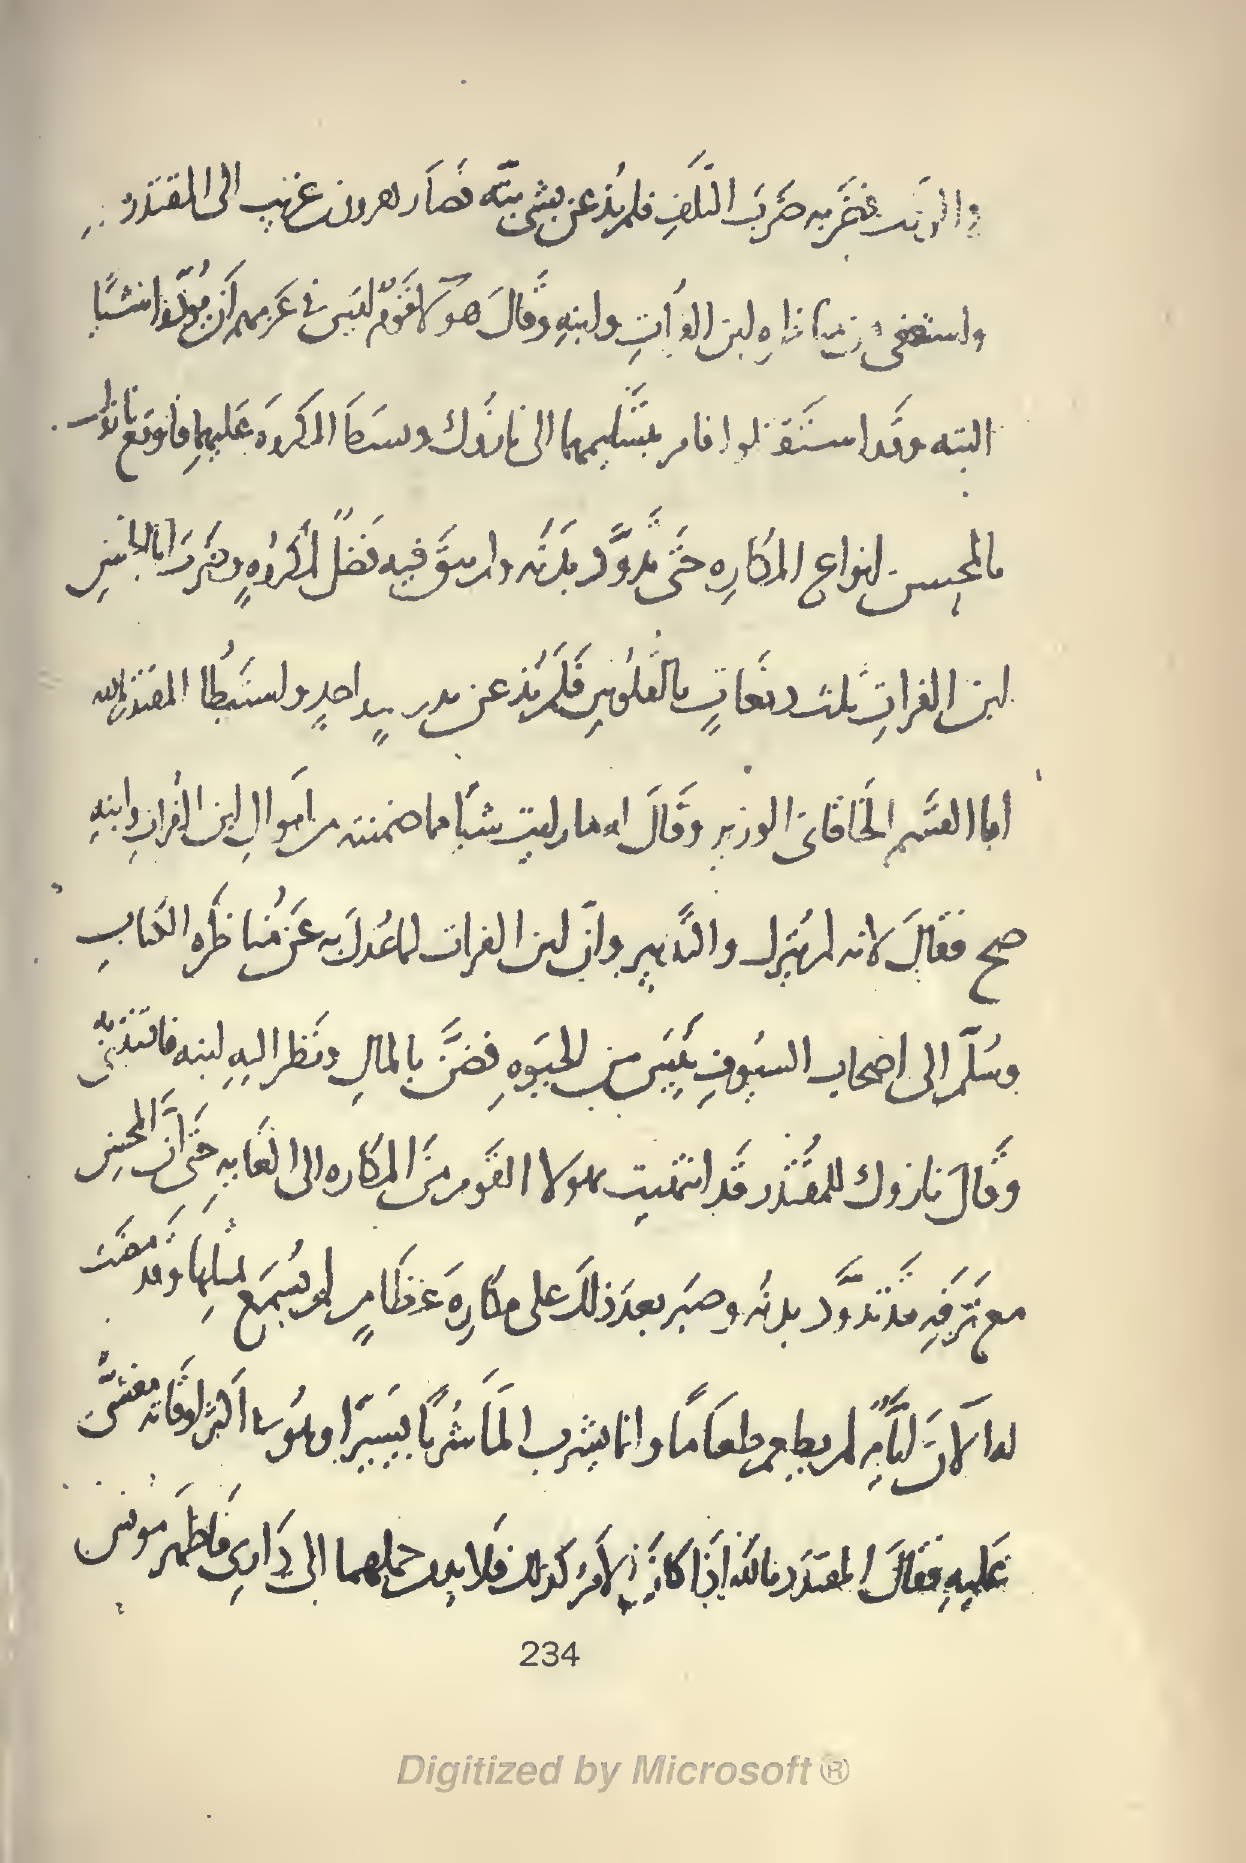 فضربه ضرب التلف فلم يذعن بشى بتّه فصار هرون بن غريب الى المقتدر
واستعفى من مناظره ابن الفرات وابنه وقال هولا قوم ليس فى عزمهم ان يودّوا شيًا
البته وقد استقتلوا فامر بتسليمهما الى نازوك وبسط المكروه عليهما فاوقع نازوك
بالمحسن انواع المكاره حتى تدوّد بدنه ولم يبق فيه فضل لمكروه وضرب ابا الحسن
ابن الفرات ثلث دفعات بالقلوس فلم يذعن بدرهم واحد واستبطا المقتدر بالله
ابا القسم الخاقانى الوزير وقال له ما رايت شيًا مما ضمنته من اموال ابن الفرات وابنه
صح فقال لانه لم يترك والتدبير وان ابن الفرات لما عدل به عن مناظره الكتاب
وسلّم الى اصحاب السيوف يئس من الحيوه فضنّ بالمال ونظر اليه ابنه فاقتدى به
وقال نازوك للمقتدر قد انتهيت بهولا القوم من المكاره الى الغايه حتى ان المحسن
مع ترفه قد تدوّد بدنه وصبر بعد ذلك على مكاره عظام لم يسمع بمثلها وقد مضت
له الان ايّام لم يطعم طعامًا وانما يشرب الما شربًا يسيرًا وهو فى اكثر اوقاته مغشىّ
عليه فقال المقتدر بالله اذا كان الامر كذلك فلا بد من حملهما الى دارى فاظهر مونس
234
Digitized by Microsoft ®